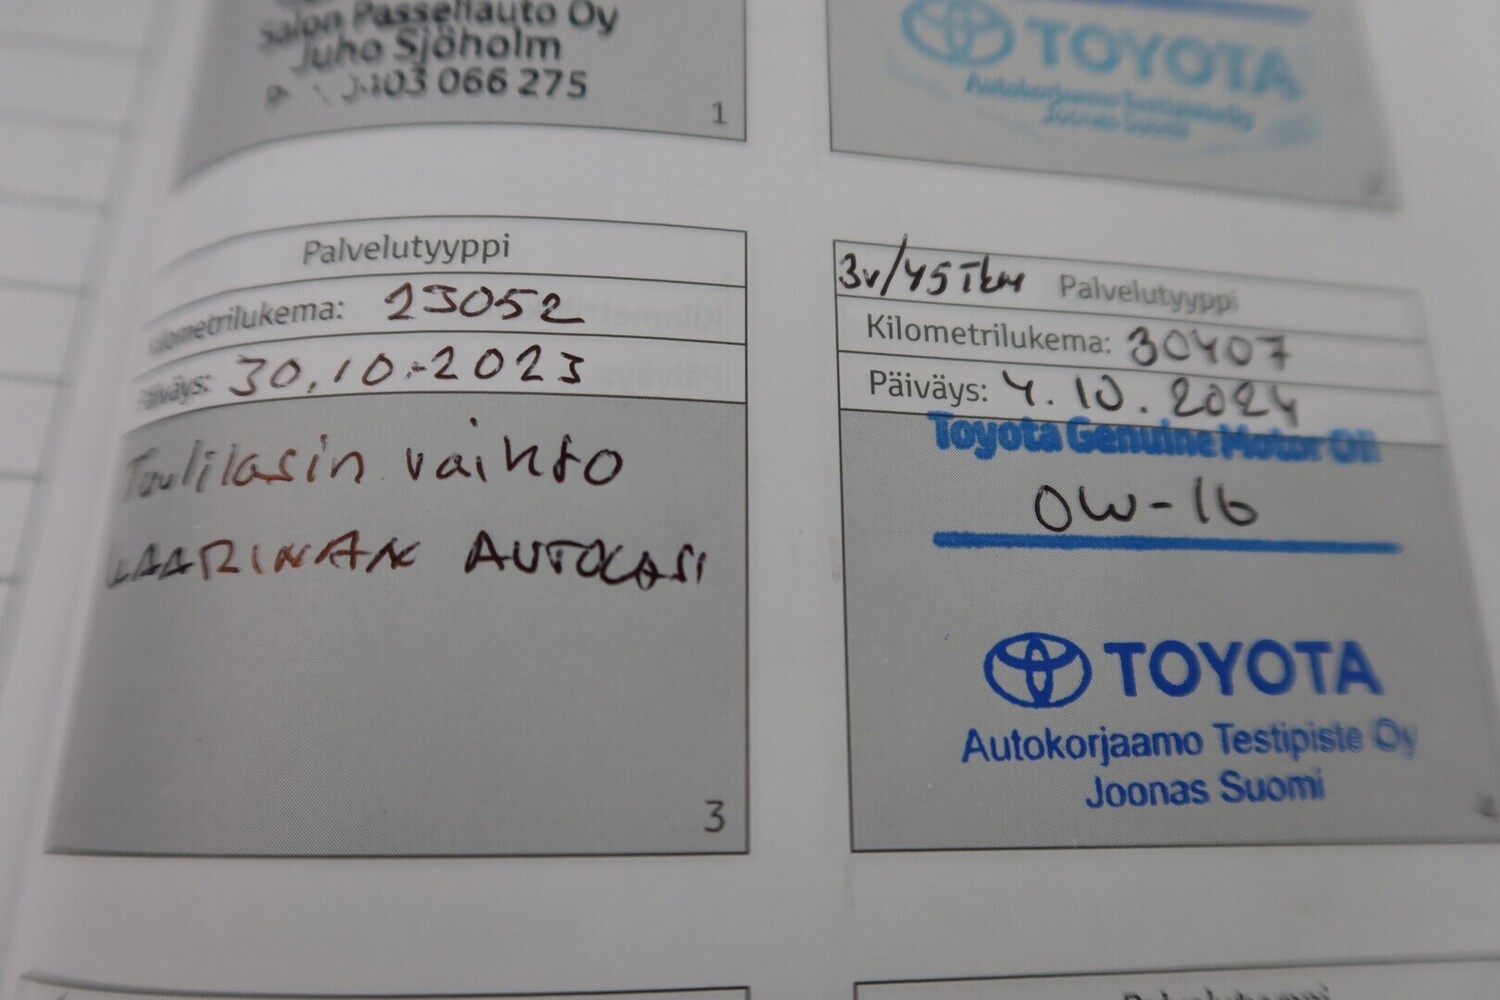 Salon Passeliauto Oy
Juho Sjöholm
066 275
1
TOYOTA
Autokorjaamo Testipiste Oy
Joonas Suomi
Palvelutyyppi
Kilometrilukema: 23052
Päiväys: 30.10.-2023
Tuulilasin vaihto
AUTOLASI
3
3v/45 Tkm Palvelutyyppi
Kilometrilukema: 30407
Päiväys: 4.10.2024
Toyota Genuine Motor Oil
0W-16
TOYOTA
Autokorjaamo Testipiste Oy
Joonas Suomi
4